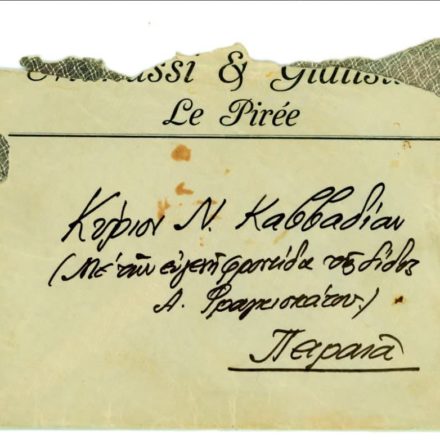 & Giulis
Le Pirée
Κύριον Ν. Καββαδίαν
(Μὲ τὴν εὐγενῆ φροντίδα τῆς δίδος
Α. Φραγκισκάτου.)
Πειραιᾶ